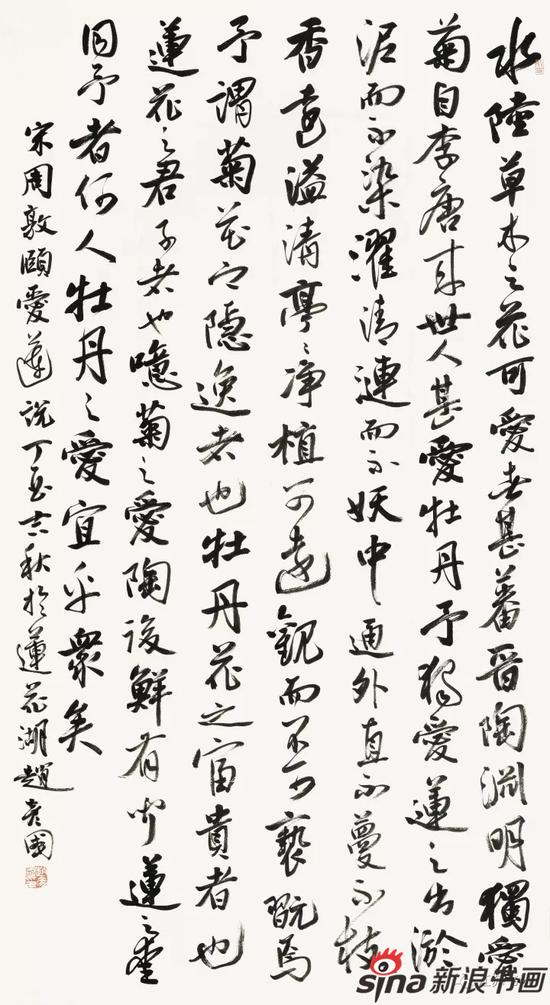 水陸草木之花可愛者甚蕃晉陶淵明獨愛
菊自李唐来世人甚愛牡丹予獨愛蓮之出淤
泥而不染濯清漣而不妖中通外直不蔓不枝
香遠溢清亭〻净植可遠觀而不可褻翫焉
予謂菊花之隱逸者也牡丹花之富貴者也
蓮花之君子者也噫菊之愛陶後鮮有聞蓮之愛
同予者何人牡丹之愛宜乎衆矣
宋周敦頤愛蓮説丁酉吉秋於蓮花湖趙彦國
sina新浪书画